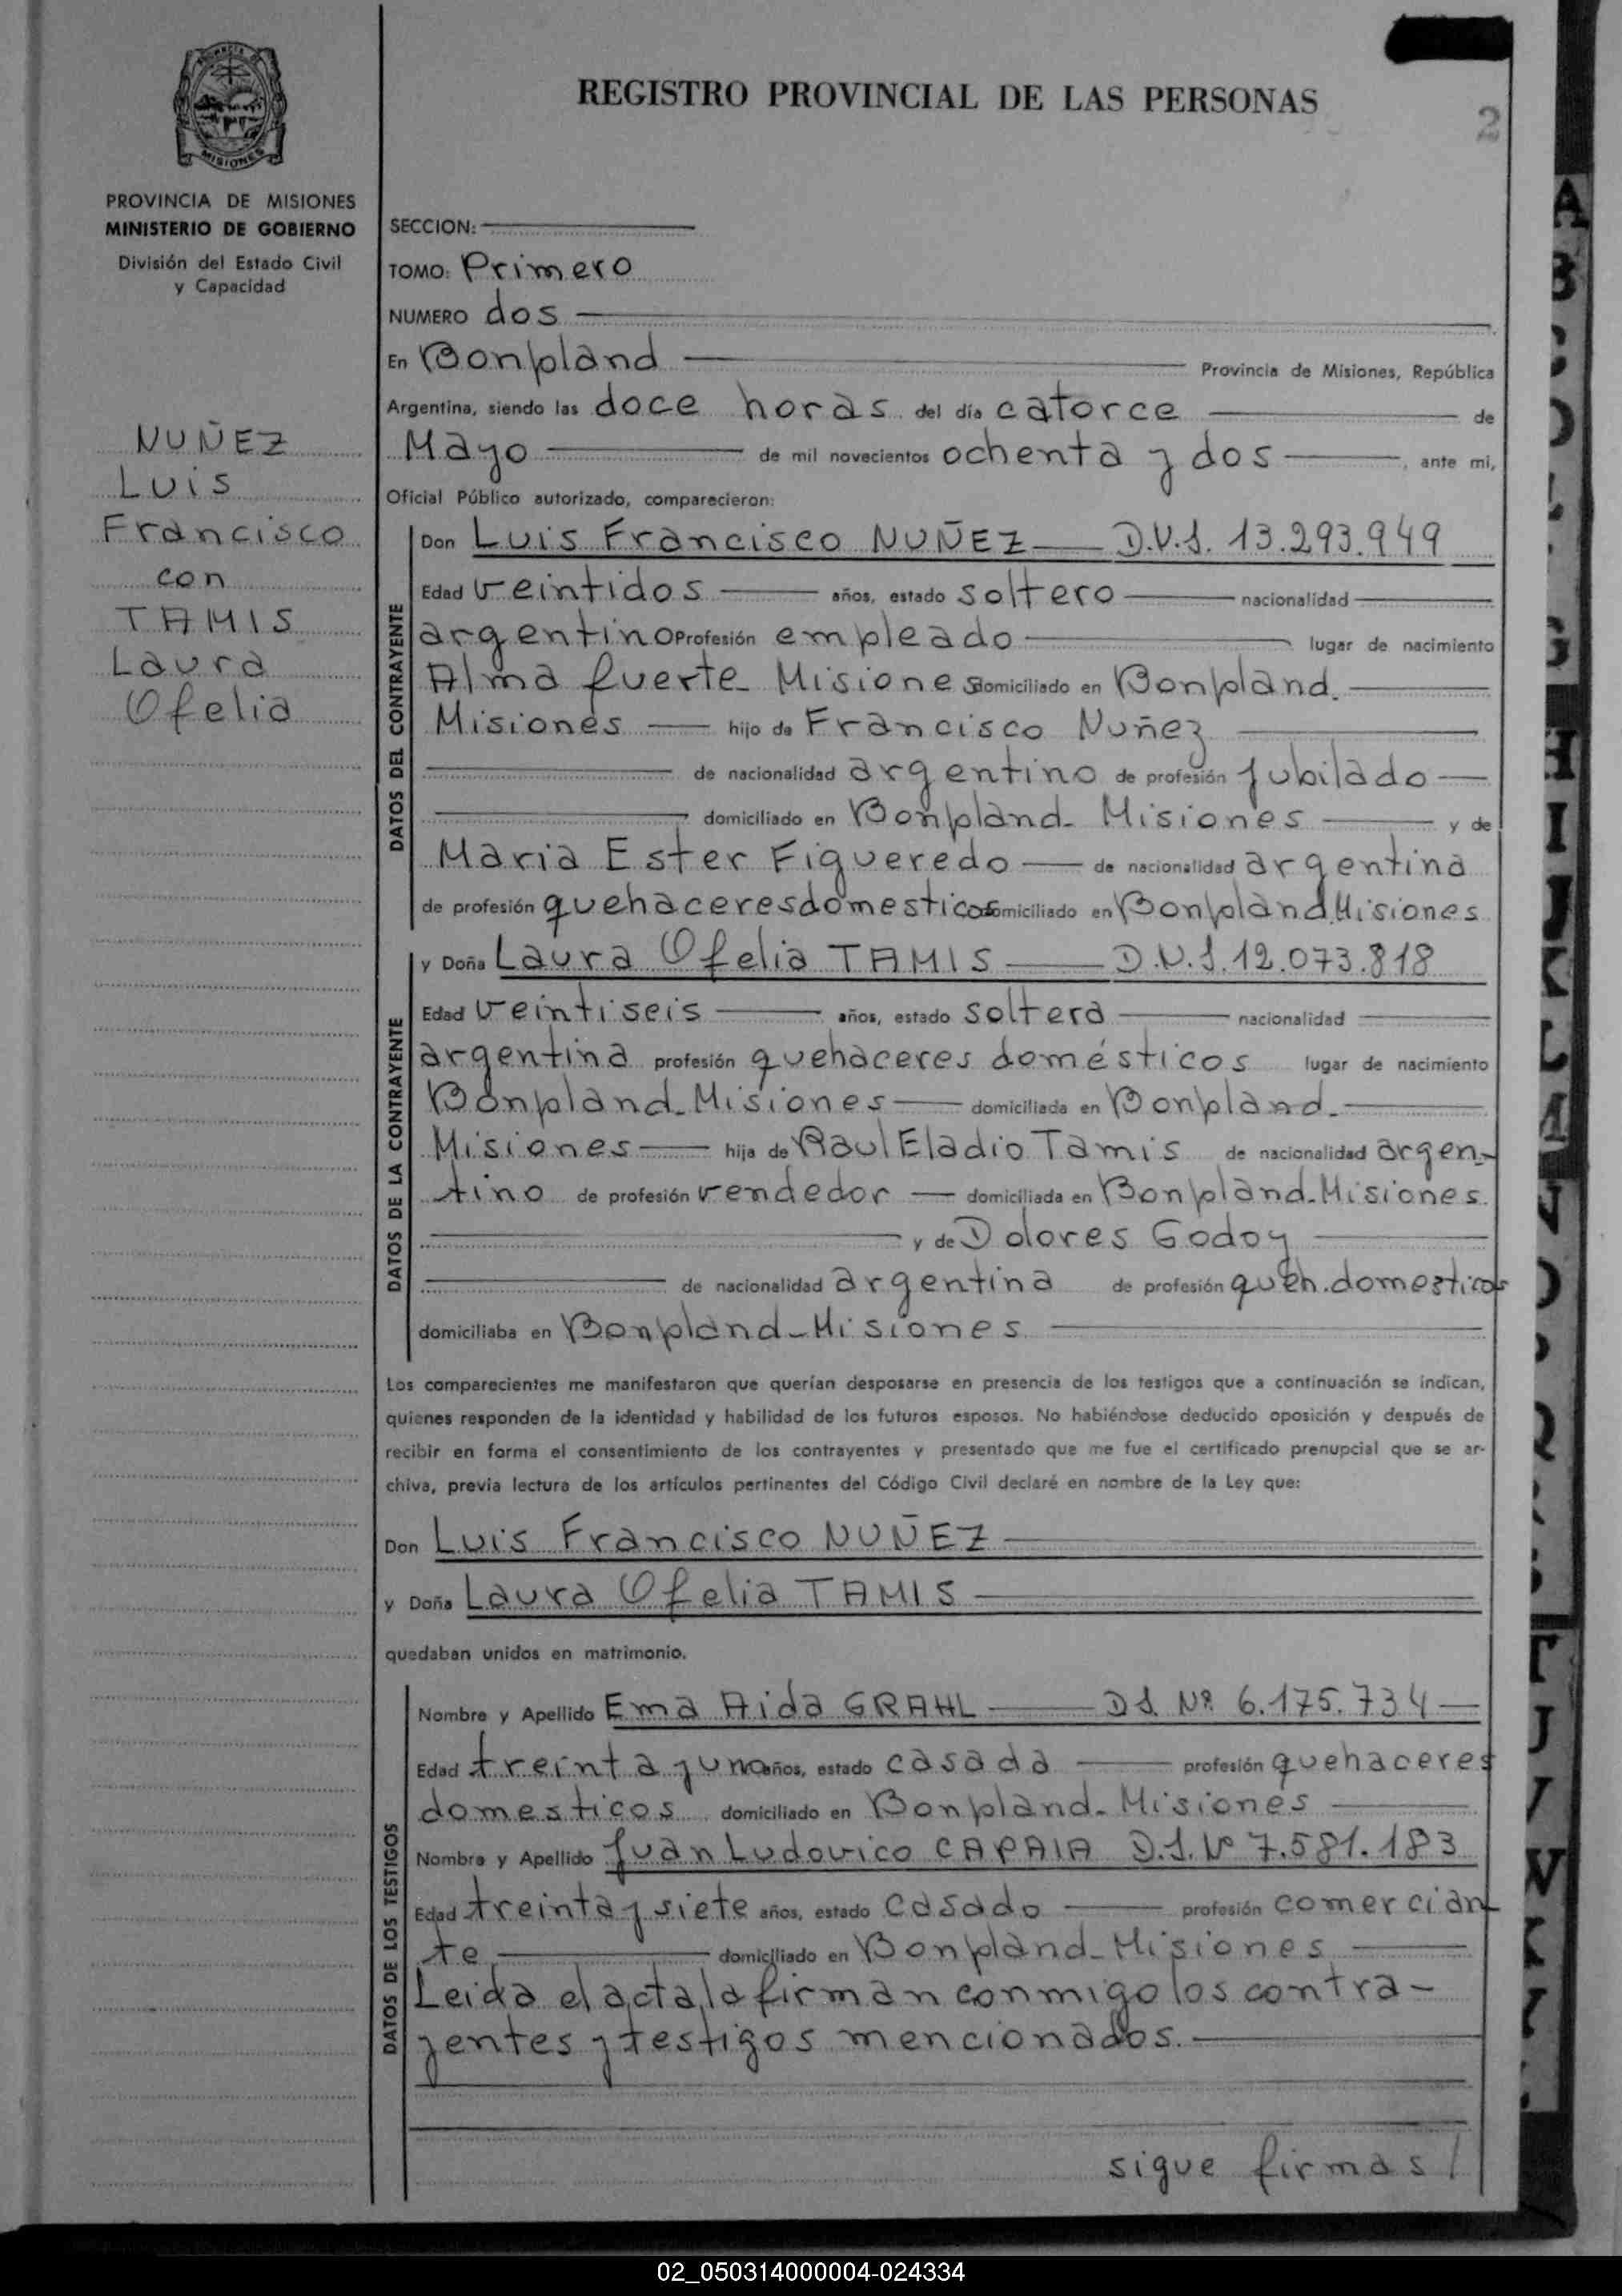 REGISTRO PROVINCIAL DE LAS PERSONAS
2
MISIONES
PROVINCIA DE MISIONES
MINISTERIO DE GOBIERNO
División del Estado Civil
y Capacidad
NUÑEZ
Luis
Francisco
con
TAMIS
Laura
Ofelia
SECCION:
TOMO: Primero
NUMERO dos
En Bonpland Provincia de Misiones, República
Argentina, siendo las doce horas del día catorce de
Mayo de mil novecientos ochenta y dos, ante mi,
Oficial Público autorizado, comparecieron:
DATOS DEL CONTRAYENTE
Don Luis Francisco NUÑEZ D.N.I. 13.293.949
Edad veintidos años, estado soltero nacionalidad
argentino Profesión empleado lugar de nacimiento
Alma fuerte Misiones domiciliado en Bonpland.
Misiones hijo de Francisco Nuñez
de nacionalidad argentino de profesión jubilado
domiciliado en Bonpland- Misiones y de
Maria Ester Figueredo de nacionalidad argentina
de profesión quehaceres domesticos domiciliado en Bonpland Misiones
DATOS DE LA CONTRAYENTE
y Doña Laura Ofelia TAMIS D.N.I. 12.073.818
Edad veintiseis años, estado soltera nacionalidad
argentina profesión quehaceres domésticos lugar de nacimiento
Bonpland-Misiones domiciliada en Bonpland-
Misiones hija de Raul Eladio Tamis de nacionalidad argen-
tino de profesión vendedor domiciliada en Bonpland-Misiones
y de Dolores Godoy
de nacionalidad argentina de profesión queh.domesticos
domiciliaba en Bonpland-Misiones
Los comparecientes me manifestaron que querían desposarse en presencia de los testigos que a continuación se indican,
quienes responden de la identidad y habilidad de los futuros esposos. No habiéndose deducido oposición y después de
recibir en forma el consentimiento de los contrayentes y presentado que me fue el certificado prenupcial que se ar-
chiva, previa lectura de los artículos pertinentes del Código Civil declaré en nombre de la Ley que:
Don Luis Francisco NUÑEZ
y Doña Laura Ofelia TAMIS
quedaban unidos en matrimonio.
DATOS DE LOS TESTIGOS
Nombre y Apellido Ema Aida GRAHL D.I. Nº 6.175.734
Edad treinta y uno años, estado casada profesión quehaceres
domesticos domiciliado en Bonpland- Misiones
Nombre y Apellido Juan Ludovico CAPAIA D.I. Nº 7.581.183
Edad treinta y siete años, estado casado profesión comercian
te domiciliado en Bonpland-Misiones
Leida el acta, la firman conmigo los contra-
yentes y testigos mencionados.
sigue firmas/
02_050314000004-024334